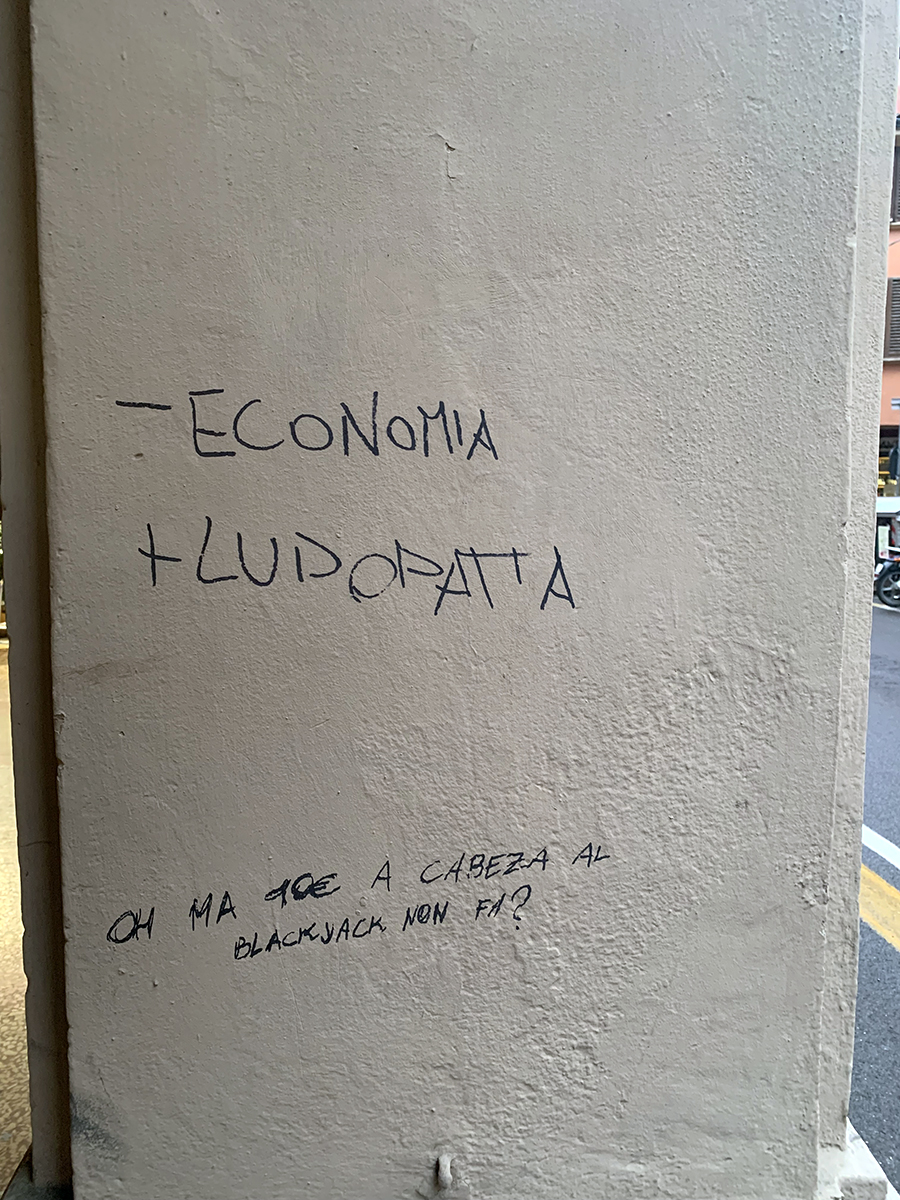 - ECONOMIA
+ LUDOPATIA
OH MA 10€ A CABEZA AL
BLACKJACK NON FA?